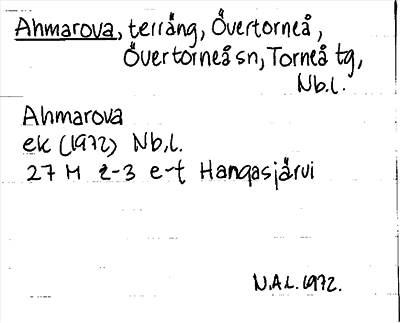 Ahmarova, terräng, Övertorneå,
Övertorneå sn, Torneå tg,
Nb.l.
Ahmarova
ek (1972) Nb.l.
27 M 2-3 e-t Hangasjärvi
N.A.L. 1972.